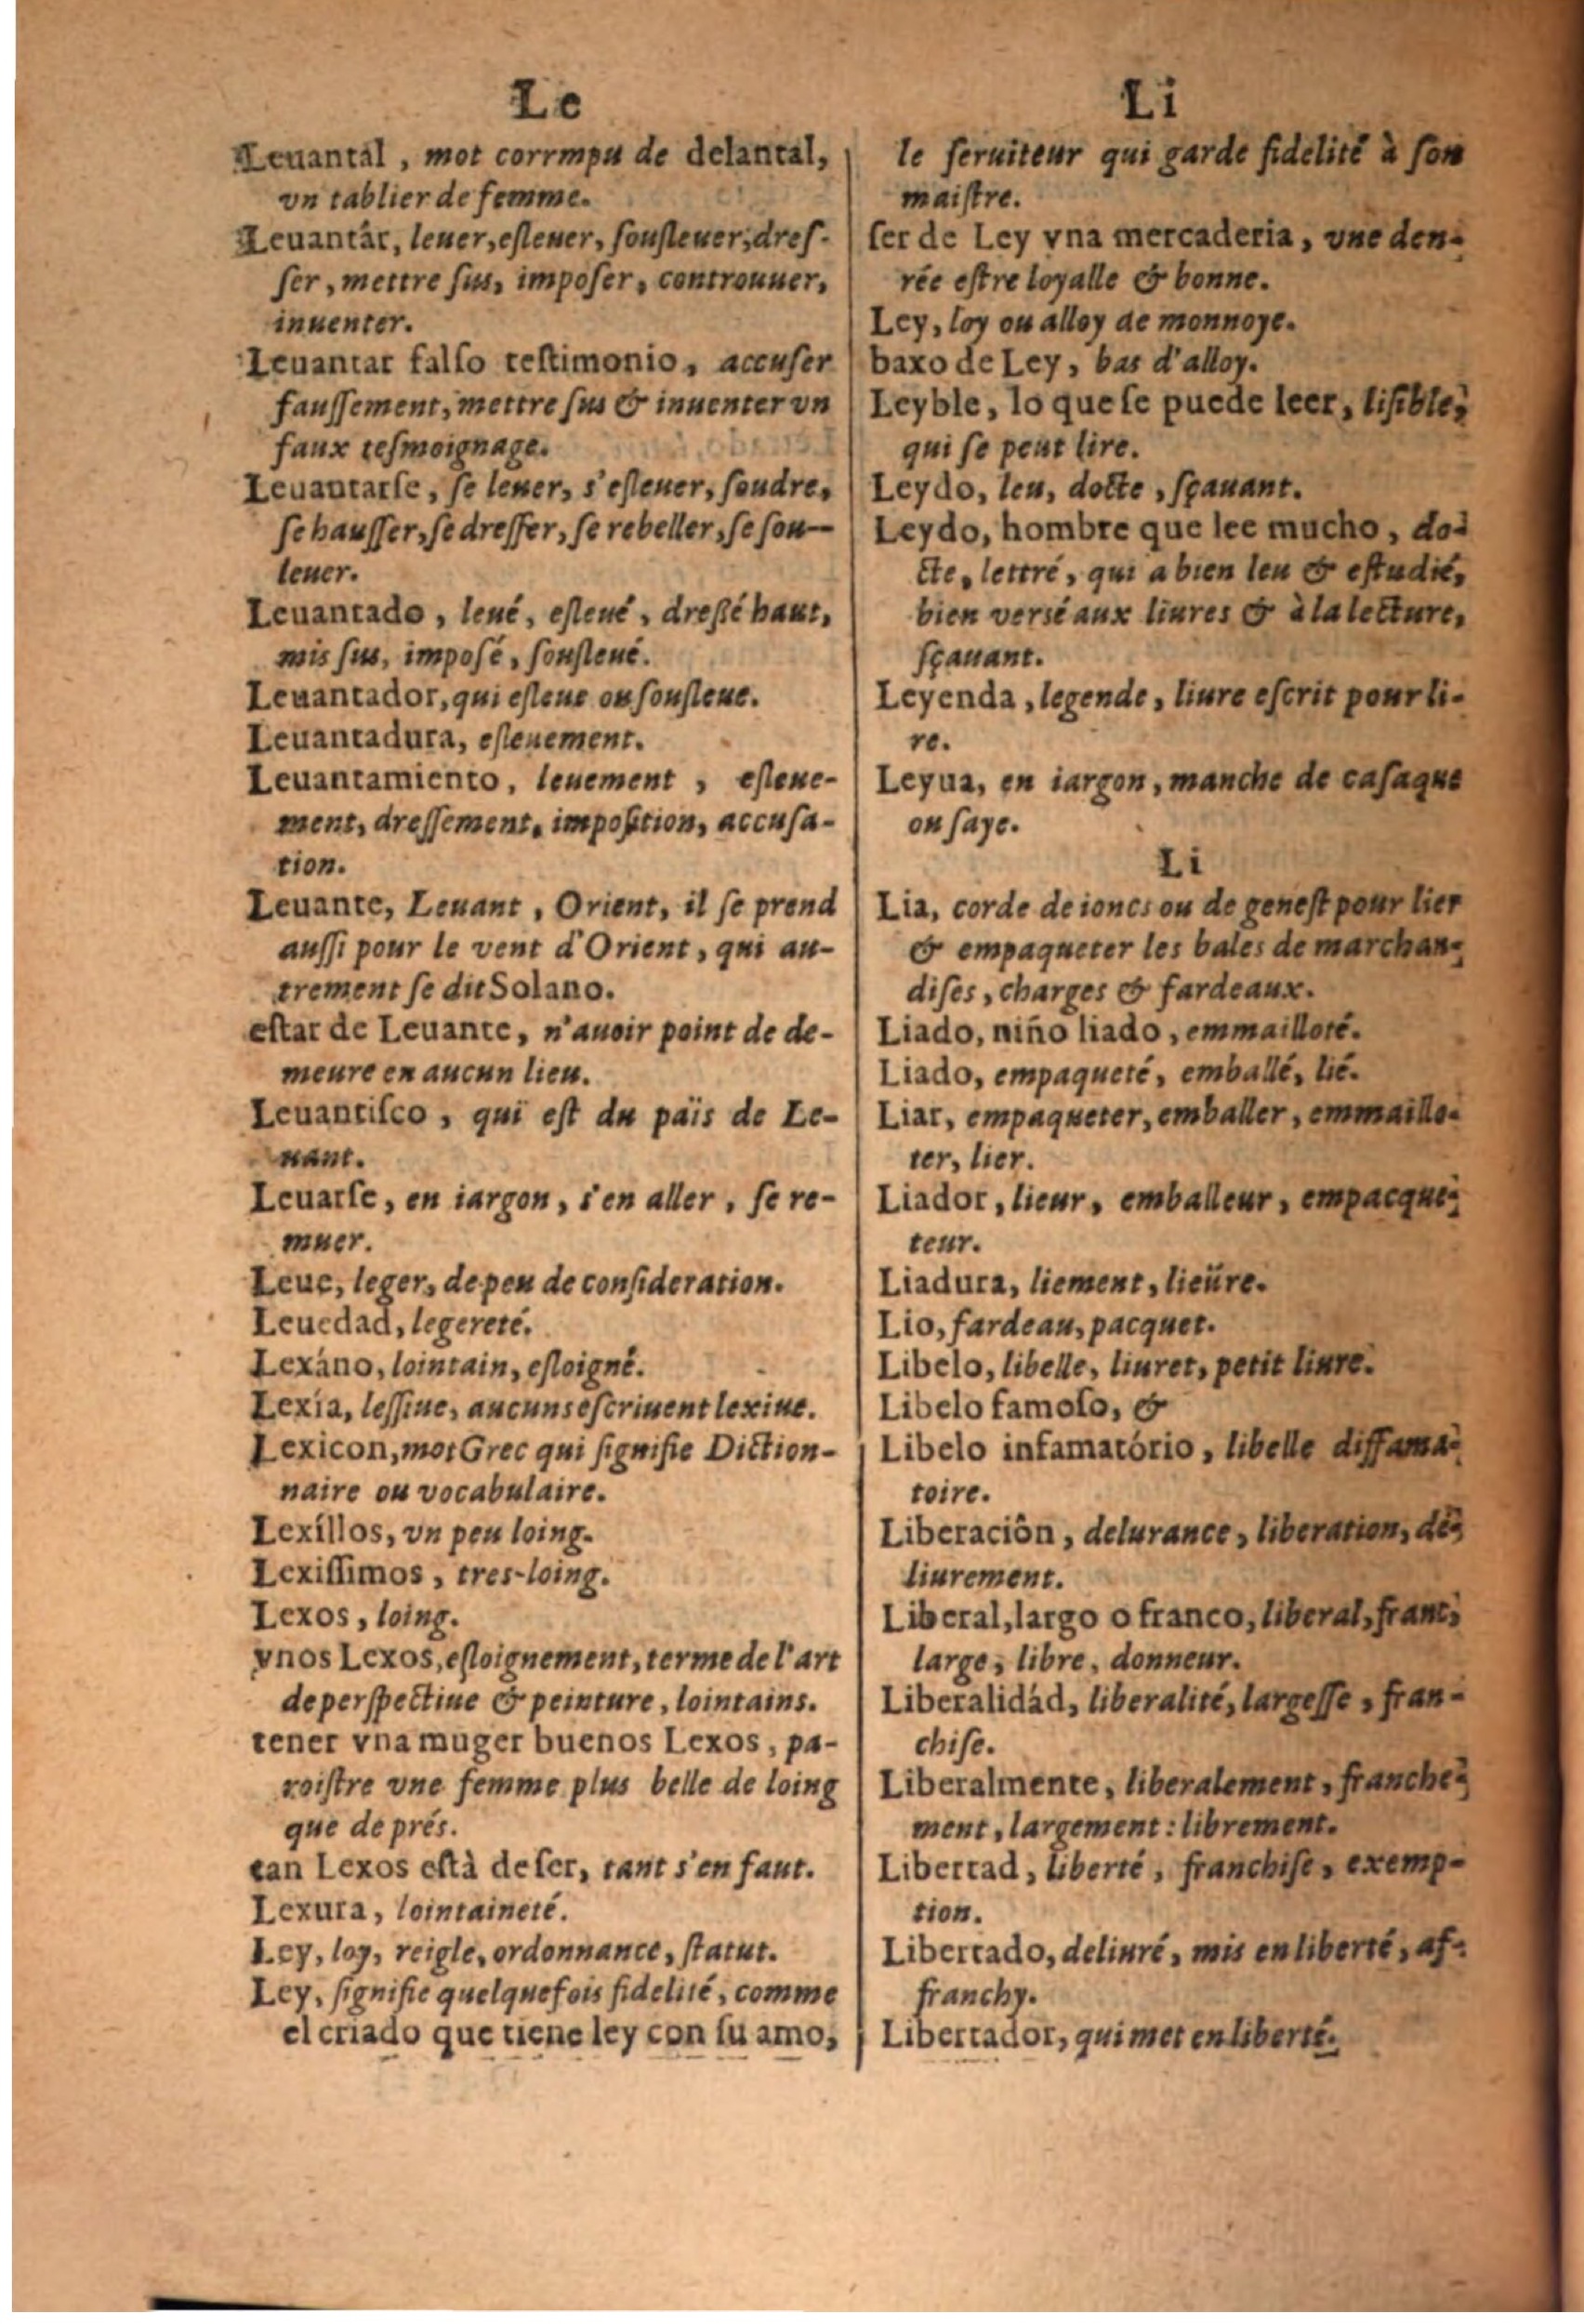 Le
Leuantál, mot corrmpu de delantal,
vn tablier de femme.
Leuantâr, leuer, eſleuer, ſouſleuer, dreſ-
ſer, mettre ſus, impoſer, controuuer,
inuenter.
Leuantar falſo teſtimonio, accuſer
fauſſement, mettre ſus & inuenter vn
faux teſmoignage.
Leuantarſe, ſe leuer, s'eſleuer, ſoudre,
ſe hauſſer, ſe dreſſer, ſe rebeller, ſe ſou-
leuer.
Leuantado, leué, eſleué, dreßé haut,
mis ſus, impoſé, ſouſleué.
Leuantador, qui eſleue ou ſouſleue.
Leuantadura, eſleuement.
Leuantamiento, leuement, eſleue-
ment, dreſſement, impoſition, accuſa-
tion.
Leuante, Leuant, Orient, il ſe prend
auſſi pour le vent d'Orient, qui au-
trement ſe dit Solano.
eſtar de Leuante, n'auoir point de de-
meure en aucun lieu.
Leuantiſco, qui eſt du païs de Le-
uant.
Leuarſe, en iargon, s'en aller, ſe re-
muer.
Leue, leger, de peu de conſideration.
Leuedad, legereté.
Lexáno, lointain, eſloigné.
Lexía, leſſiue, aucuns eſcriuent lexiue.
Lexicon, mot Grec qui ſignifie Diction-
naire ou vocabulaire.
Lexíllos, vn peu loing.
Lexiſſimos, tres-loing.
Lexos, loing.
vnos Lexos, eſloignement, terme de l'art
de perſpectiue & peinture, lointains.
tener vna muger buenos Lexos, pa-
roiſtre vne femme plus belle de loing
que de prés.
tan Lexos eſtà de ſer, tant s'en faut.
Lexura, lointaineté.
Ley, loy, reigle, ordonnance, ſtatut.
Ley, ſignifie quelquefois fidelité, comme
el criado que tiene ley con ſu amo,
Li
le ſeruiteur qui garde fidelité à ſon
maiſtre.
ſer de Ley vna mercaderia, vne den-
rée eſtre loyalle & bonne.
Ley, loy ou alloy de monnoye.
baxo de Ley, bas d'alloy.
Leyble, lo que ſe puede leer, liſible,
qui ſe peut lire.
Leydo, leu, docte, ſçauant.
Leydo, hombre que lee mucho, do-
cte, lettré, qui a bien leu & eſtudié,
bien versé aux liures & à la lecture,
ſçauant.
Leyenda, legende, liure eſcrit pour li-
re.
Leyua, en iargon, manche de caſaque
ou ſaye.
Li
Lia, corde de ioncs ou de geneſt pour lier
& empaqueter les bales de marchan-
diſes, charges & fardeaux.
Liado, niño liado, emmailloté.
Liado, empaqueté, emballé, lié.
Liar, empaqueter, emballer, emmaillo-
ter, lier.
Liador, lieur, emballeur, empacque-
teur.
Liadura, liement, lieüre.
Lio, fardeau, pacquet.
Libelo, libelle, liuret, petit liure.
Libelo famoſo, &
Libelo infamatório, libelle diffama-
toire.
Liberaciôn, delurance, liberation, de-
liurement.
Liberal, largo o franco, liberal, franc,
large, libre, donneur.
Liberalidád, liberalité, largeſſe, fran-
chiſe.
Liberalmente, liberalement, franche-
ment, largement: librement.
Libertad, liberté, franchiſe, exemp-
tion.
Libertado, deliuré, mis en liberté, af-
franchy.
Libertador, qui met en liberté.